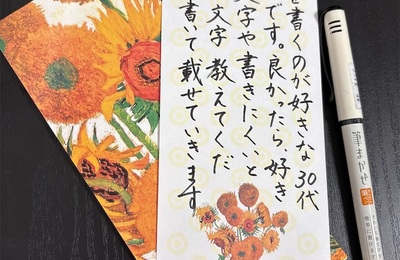 を書くのが好きな 30代
です。良かったら、好き
字や書きにくいと
文字 教えてくだ
書いて載せていきます
筆まかせ